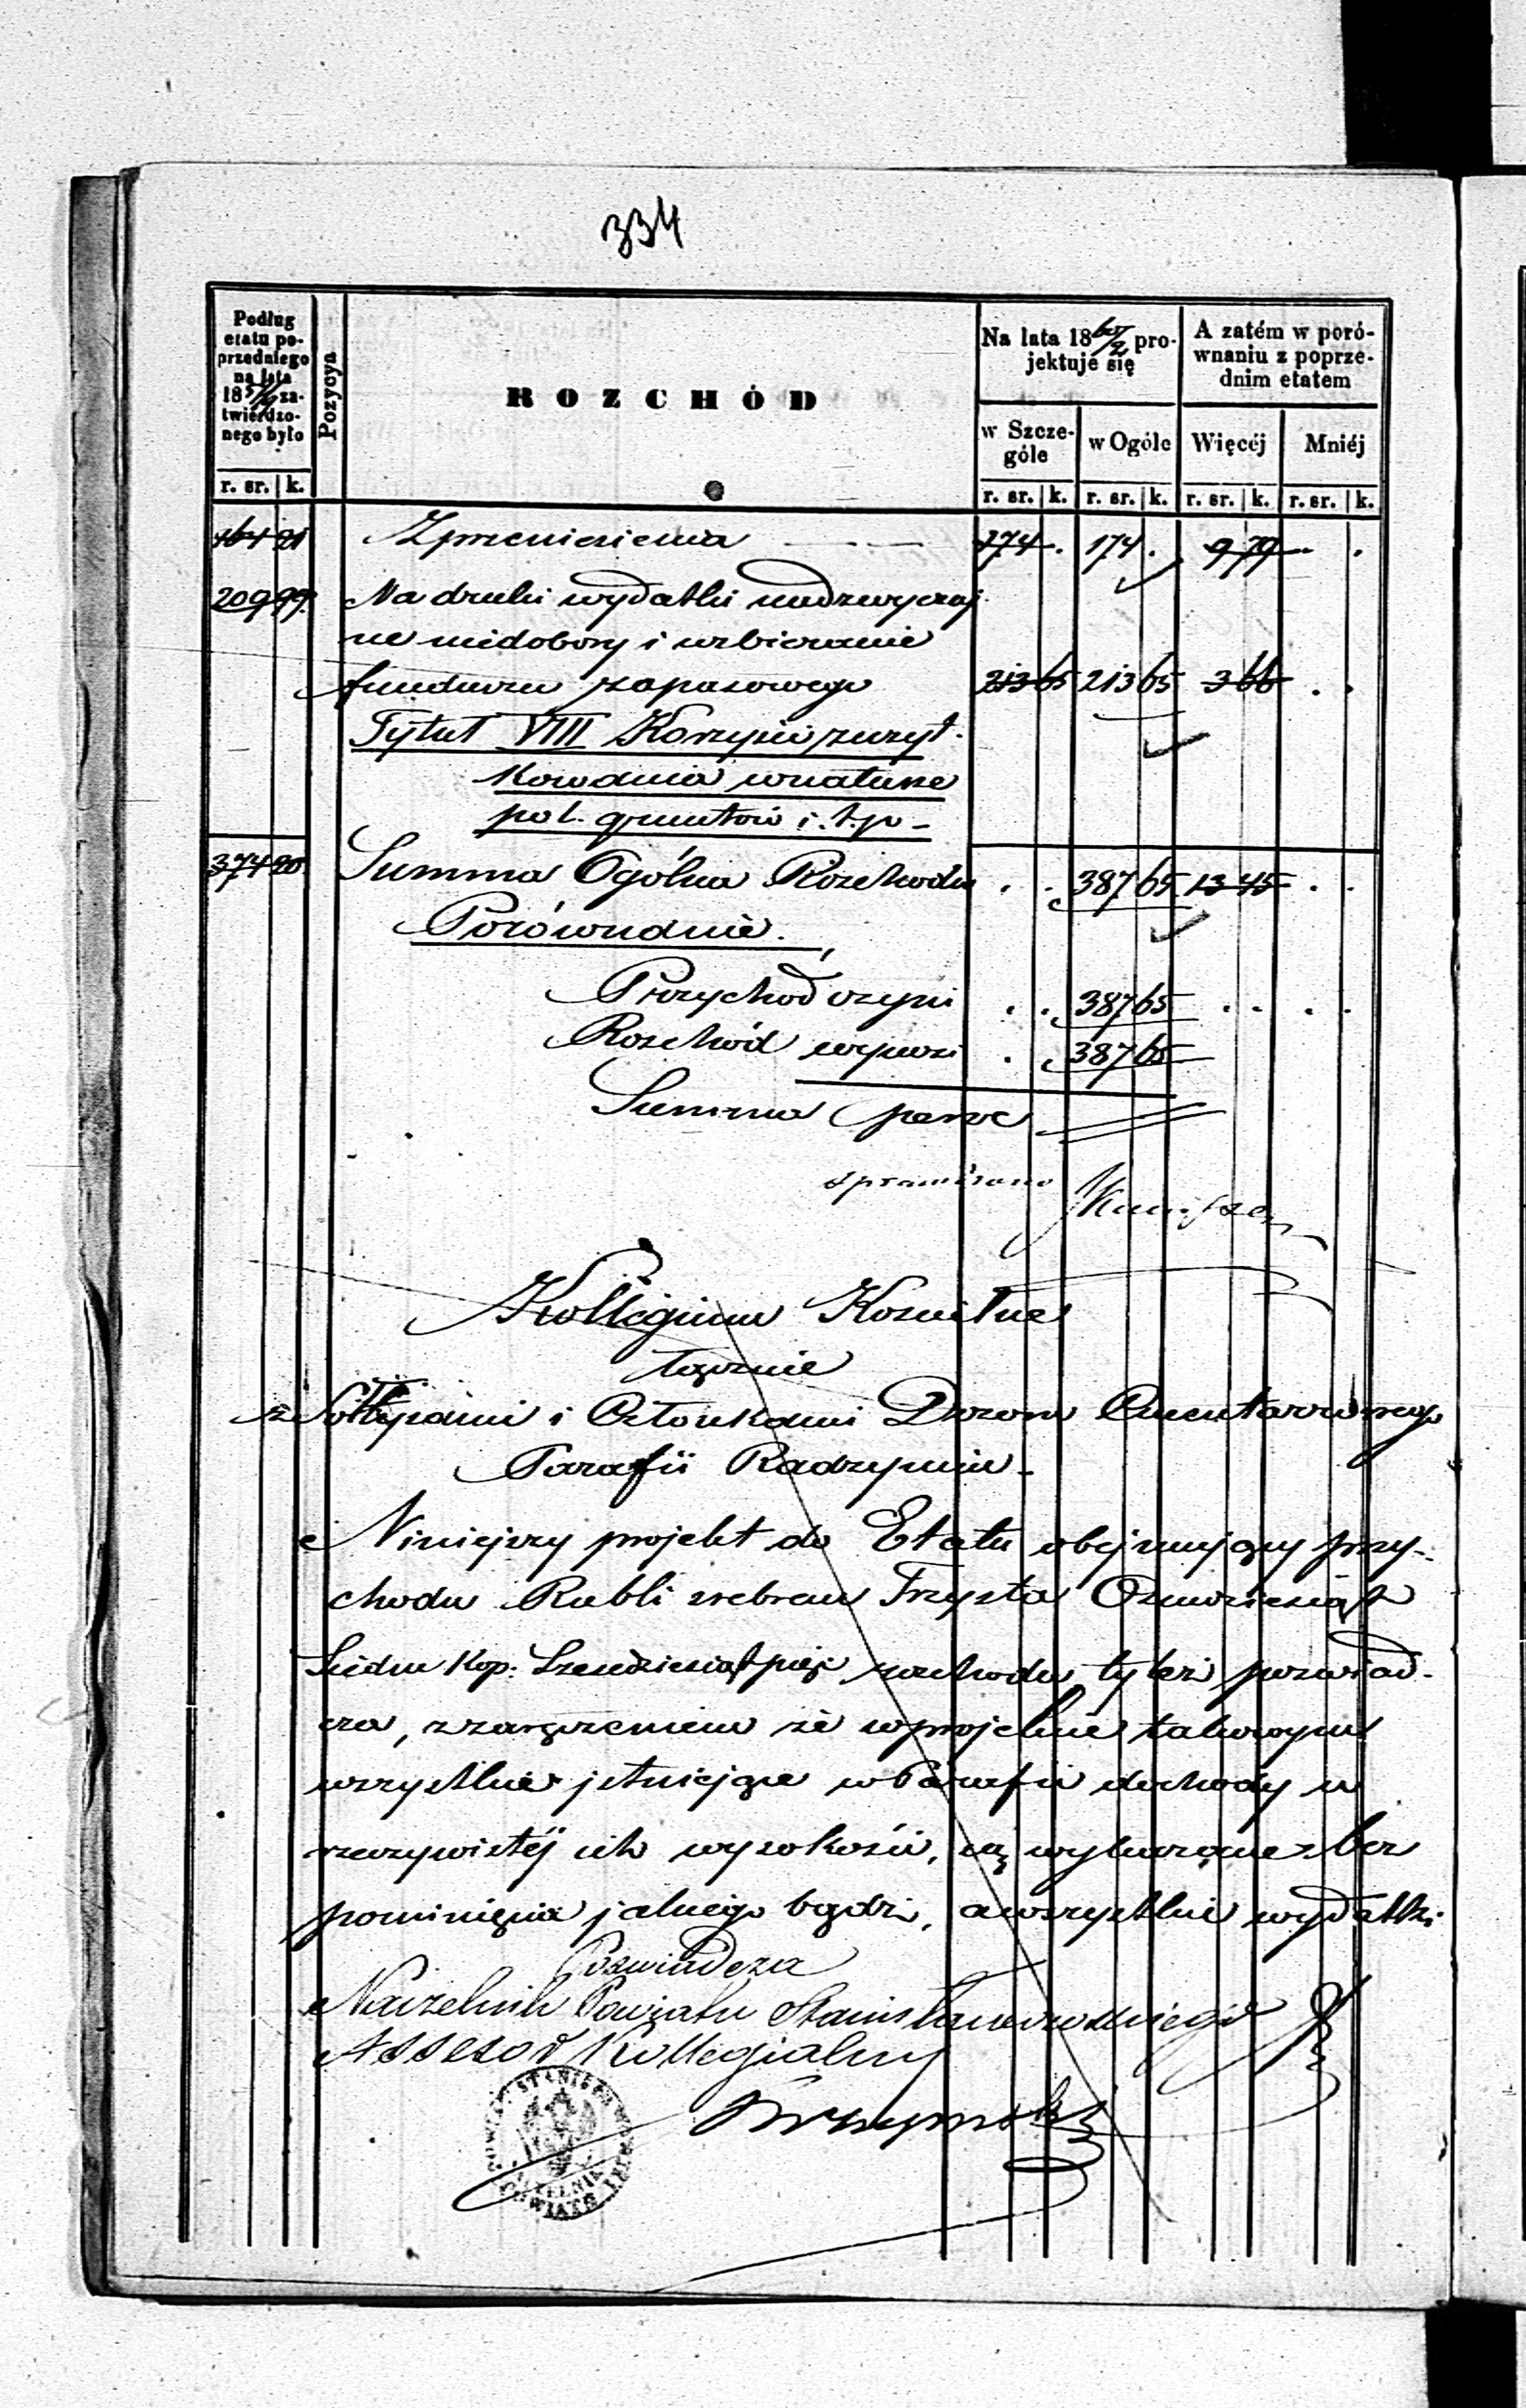 334
Podług etatu poprzedniego na lata 18 zatwierdzonego było
r. sr. k.
Pozycya
ROZCHÓD
Na lata 18 60/2 projektuje się
w Szczególe
w Ogóle
r. sr. k. r. sr. k.
A zatém w porównaniu z poprzednim etatem
Więcéj Mniéj
r. sr. k. r. sr. k.
164 21 Z przeniesienia 174 . 174 . 9 79 . .
209 99 Na druki wydatki nadzwyczaj
ne niedobory i uzbieranie
funduszu zapasowego 213 65 213 65 3 66 . .
Tytuł VIII Korzyści zużyt
kowania w naturze
pol. gruntów i. t. p.
374 20 Summa Ogólna Rozchodu . . 387 65 13 45 . .
Porównanie.
Przychód czyni . . 387 65 . . . .
Rozchód wynosi . 387 65
Summa parue
sprawdzono
Kollegium Kościelne
łącznie
z Sołtysami i Członkami Dozoru Cmentarnego
Parafii Radzymin
Niniejszy projekt do Etatu obejmujący przy-
chodu Rubli srebrem Trzysta Ośmdziesiąt
Siedm Kop: Sześćdziesiąt pięć rozchodu tyleż poświad-
cza, z zaręczeniem że w projekcie takowym
wszystkie istniejące w Parafii dochody w
rzeczywistéj ich wysokości, są wykazane bez
pominięcia jakiego bądź, a wszystkie wydatki
Poświadcza
Naczelnik Powiatu Stanisławowskiego
Assesor Kollegialny